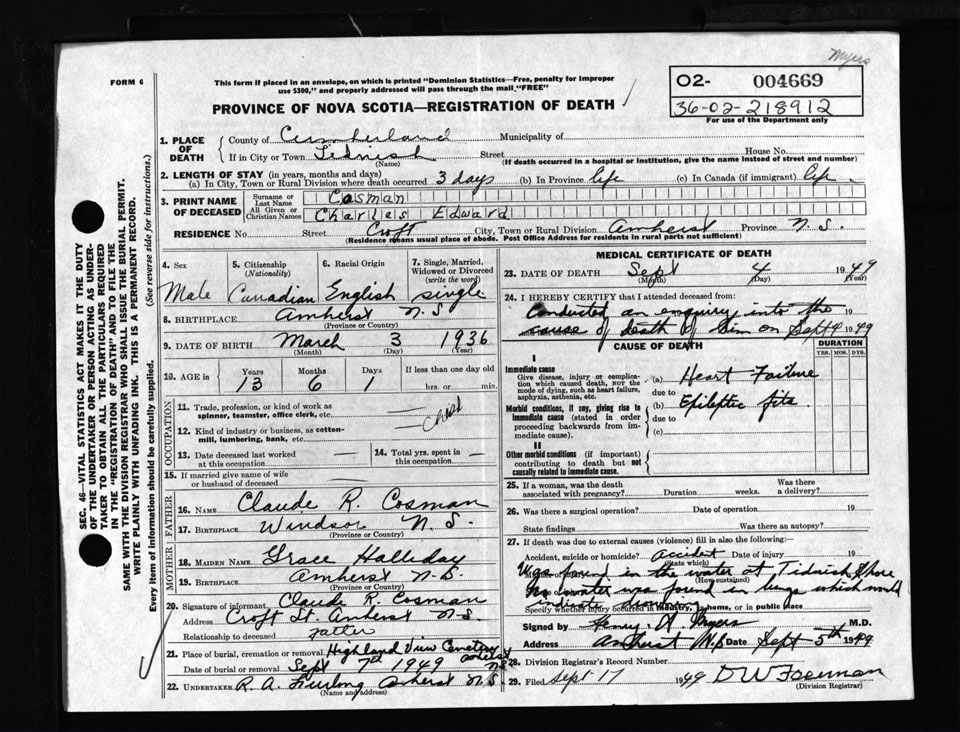 Myers
FORM 6
This form if placed in an envelope, on which is printed "Dominion Statistics—Free, penalty for improper
use $300," and properly addressed will pass through the mail "FREE"
O2- 004669
36-02-218912
For use of the Department only
PROVINCE OF NOVA SCOTIA—REGISTRATION OF DEATH
1. PLACE OF DEATH
County of Cumberland Municipality of
If in City or Town Tidnish Street House No.
(Name) (If death occurred in a hospital or institution, give the name instead of street and number)
2. LENGTH OF STAY (in years, months and days)
(a) In City, Town or Rural Division where death occurred 3 days (b) In Province life (c) In Canada (if immigrant) life
3. PRINT NAME OF DECEASED
Surname or Last Name Cosman
All Given or Christian Names Charles Edward
RESIDENCE No. Street Croft City, Town or Rural Division Amherst Province N.S.
(Residence means usual place of abode. Post Office Address for residents in rural parts not sufficient)
4. Sex 5. Citizenship (Nationality) 6. Racial Origin 7. Single, Married, Widowed or Divorced (write the word)
Male Canadian English single
8. BIRTHPLACE Amherst N.S.
(Province or Country)
9. DATE OF BIRTH March 3 1936
(Month) (Day) (Year)
10. AGE in Years Months Days If less than one day old
13 6 1 hrs. or min.
OCCUPATION
11. Trade, profession, or kind of work as
spinner, teamster, office clerk, etc.
Child
12. Kind of industry or business, as cotton-
mill, lumbering, bank, etc.
13. Date deceased last worked at this occupation 14. Total yrs. spent in this occupation
15. If married give name of wife
or husband of deceased
FATHER
16. NAME Claude R. Cosman
17. BIRTHPLACE Windsor N.S.
(Province or Country)
MOTHER
18. MAIDEN NAME Grace Halliday
19. BIRTHPLACE Amherst N.S.
(Province or Country)
20. Signature of informant Claude R. Cosman
Address Croft St. Amherst N.S.
Relationship to deceased father
21. Place of burial, cremation or removal Highland View Cemetery Amherst N.S.
Date of burial or removal Sept 7th 1949
22. UNDERTAKER R. A. Furlong Amherst N.S.
(Name and address)
MEDICAL CERTIFICATE OF DEATH
23. DATE OF DEATH Sept 4 1949
(Month) (Day) (Year)
24. I HEREBY CERTIFY that I attended deceased from:
Conducted an enquiry into the 19
cause of death of him on Sept 4 1949
CAUSE OF DEATH DURATION
YRS. MOS. DYS.
I
Immediate cause
Give disease, injury or complica-
tion which caused death, NOT the
mode of dying, such as heart failure,
asphyxia, asthenia, etc.
(a) Heart Failure
due to
Morbid conditions, if any, giving rise to
immediate cause (stated in order
proceeding backwards from im-
mediate cause).
(b) Epileptic fits
due to
(c)
II
Other morbid conditions (if important)
contributing to death but not
causally related to immediate cause.
25. If a woman, was the death associated with pregnancy? Duration weeks. Was there a delivery?
26. Was there a surgical operation? Date of operation 19
State findings Was there an autopsy?
27. If death was due to external causes (violence) fill in also the following:
Accident, suicide or homicide? Accident Date of injury 19
(State which)
Was found in the water at Tidnish Shore
(How sustained)
No water was found in lungs which would
indicate
Specify whether injury occurred in industry, in home, or in public place
Signed by Henry A Myers M.D.
Address Amherst N.S Date Sept 5th 1949
28. Division Registrar's Record Number
29. Filed Sept 17 1949 D W Foreman
(Division Registrar)
SEC. 46—VITAL STATISTICS ACT MAKES IT THE DUTY
OF THE UNDERTAKER OR PERSON ACTING AS UNDER-
TAKER TO OBTAIN ALL THE PARTICULARS REQUIRED
IN THE "REGISTRATION OF DEATH" AND TO FILE THE
SAME WITH THE DIVISION REGISTRAR WHO SHALL ISSUE THE BURIAL PERMIT.
WRITE PLAINLY WITH UNFADING INK. THIS IS A PERMANENT RECORD.
Every item of information should be carefully supplied. (See reverse side for instructions.)